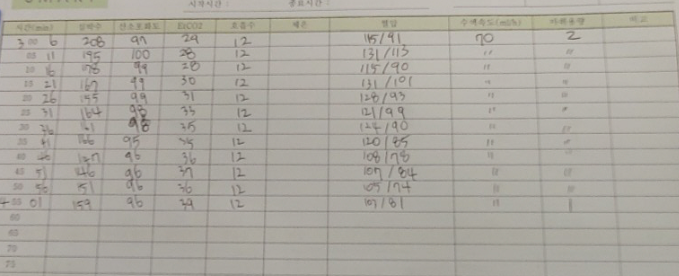 시작시간 : 종료시간 :
시간(min) 심박수 산소포화도 EtCO2 호흡수 체온 혈압 수액속도(ml/h) 마취용량 비고
3 00 6 208 97 29 12 115/91 70 2
05 11 195 100 28 12 131/113 " "
10 16 178 99 28 12 115/90 " "
15 21 167 99 30 12 131/101 " "
20 26 155 99 31 12 128/93 " "
25 31 164 98 33 12 121/99 " "
30 36 161 98 35 12 124/90 " "
35 41 166 95 35 12 120/85 " "
40 46 147 96 36 12 108/78 " "
45 51 146 96 37 12 107/84 " "
50 56 151 96 36 12 105/74 " "
4 55 01 159 96 39 12 107/81 " 1
60
65
70
75